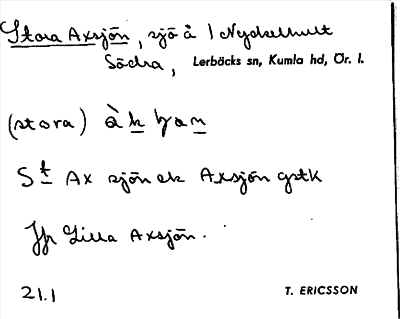 Stora Axsjön, sjö å 1 Nyckelhult
Södra, Lerbäcks sn, Kumla hd, Ör. l.
(stora) àk ʃọn
St Ax sjön ek Axsjön gstk
Jfr Lilla Axsjön.
21.1 T. ERICSSON